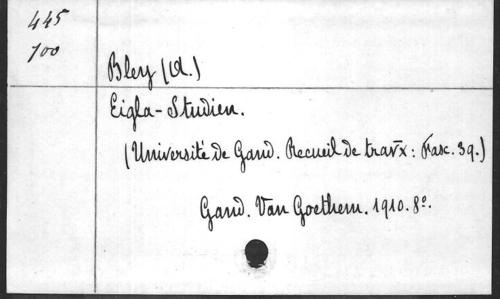 445
700
Bley (A.)
Eigla-Studien.
(Université de Gand. Recueil de trav̅x: Fasc. 39.)
Gand. Van Goethem. 1910. 8º.